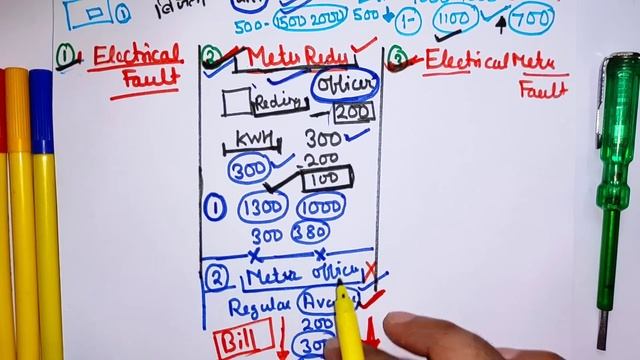 1
500- 1500 2000 500 1- 1100 700
1 Electrical
Fault
2 Meter Reder
Officer
Reding 200
KWH 300
300 200
100
1 1300 1000
300 380
2 Meter officer
Regular
Bill 200
3 Electrical Meter
Fault